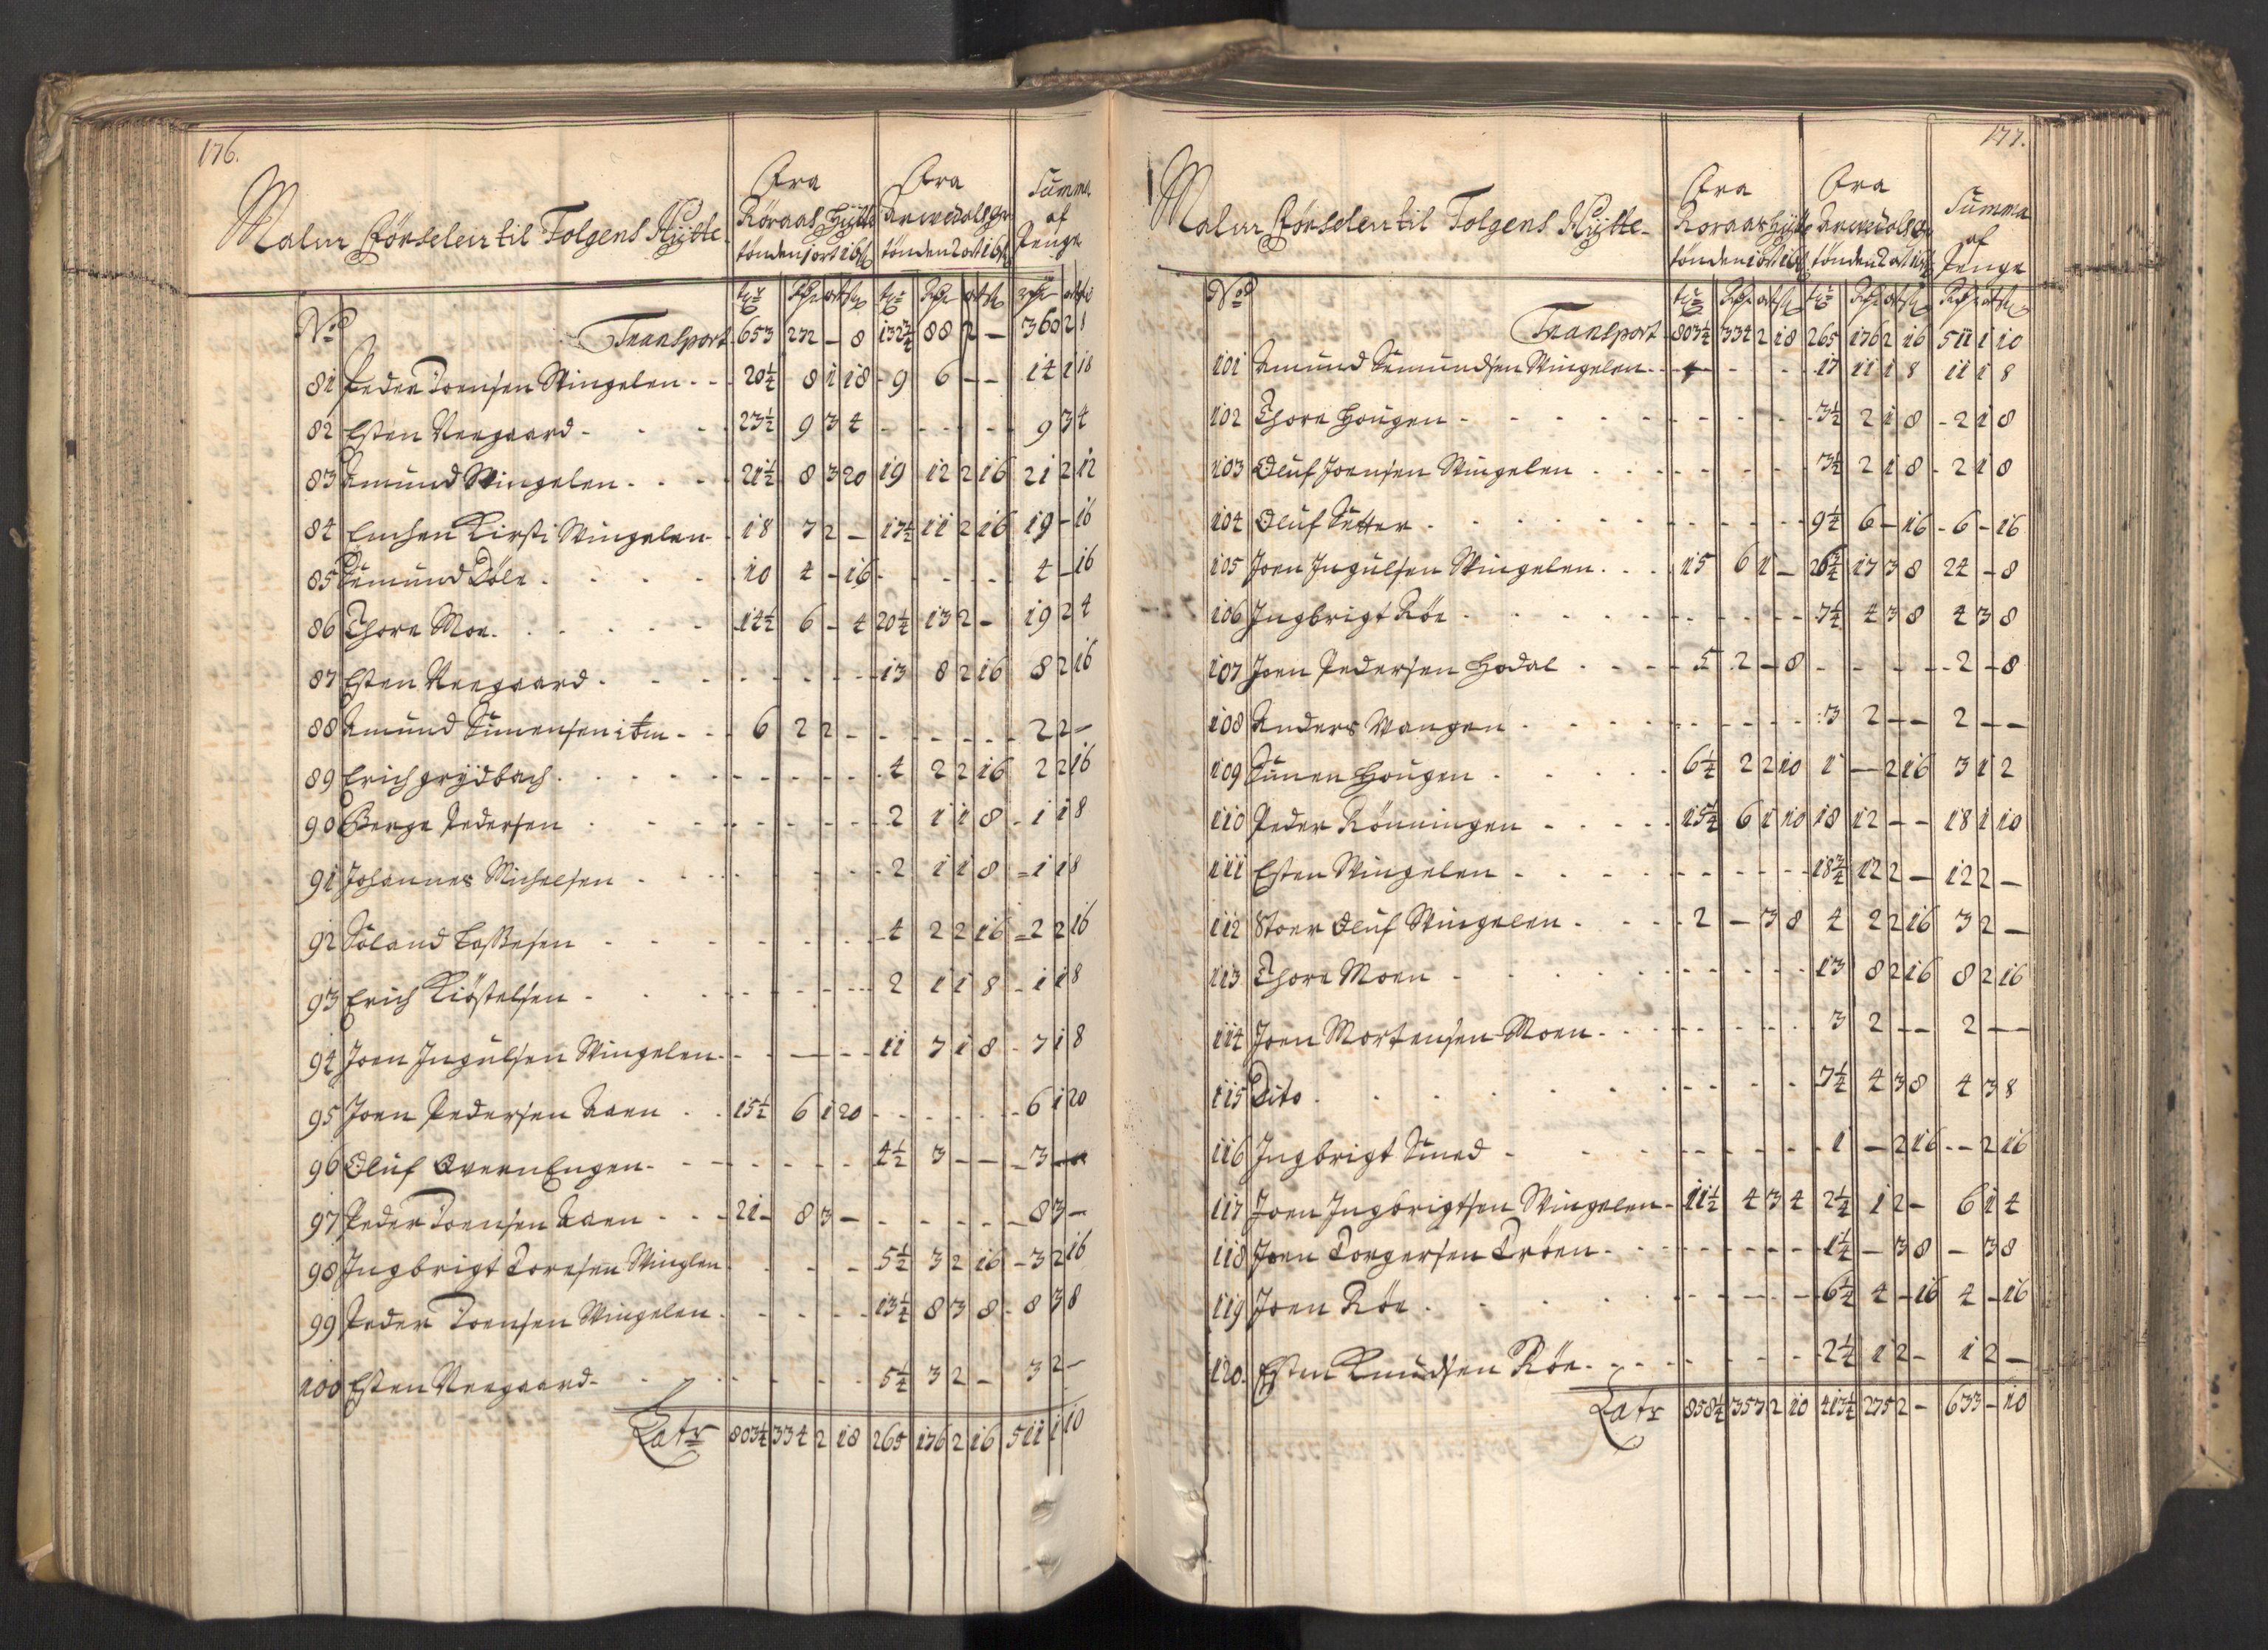 176.
Malm Förselen til Tolgens Hÿtte.
Fra Röraas Hÿtte tönden 1 ort 16 s
Fra Arwedals gr. tönden 2 ort 16 s
Summa af Penge
No
Transport 653 272 - 8 132¾ 88 2 - 360 2 8
81 Peder Joensen Wingelen - - 20¼ 8 1 18 - 9 6 - - 14 1 18
82 Esten Neegaard - - - 23½ 9 3 4 - - - - - 9 3 4
83 Amund Wingelen - - - 21½ 8 3 20 19 12 2 16 21 2 12
84 Enchen Kirsti Wingelen - 18 7 2 - 17½ 11 2 16 19 - 16
85 Semund Döle - - - - 10 4 - 16 - - - - - 4 - 16
86 Thore Moe - - - - 14½ 6 - 4 20¼ 13 2 - 19 2 4
87 Esten Neegaard - - - - - - - 13 8 2 16 8 2 16
88 Amund Simensen itm - - 6 2 2 - - - - - - 2 2 -
89 Erich grÿdbach - - - - - - - 4 2 2 16 2 2 16
90 Berge Pedersen - - - - - - - 2 1 1 8 - 1 1 8
91 Johannes Michelsen - - - - - - - 2 1 1 8 = 1 1 8
92 Söland Lassesen - - - - - - - 4 2 2 16 = 2 2 16
93 Erich Kiöstelsen - - - - - - - 2 1 1 8 - 1 1 8
94 Joen Ingulsen Wingelen - - - - - 11 7 1 8 - 7 1 8
95 Joen Pedersen Aaen - - 15½ 6 1 20 - - - - - 6 1 20
96 Oluf OvernEngen - - - - - - 4½ 3 - - - 3 - -
97 Peder Joensen Aaen - - - 21 - 8 3 - - - - - - 8 3 -
98 Ingbrigt Toresen Winglen - - - - 5½ 3 2 16 - 3 2 16
99 Peder Joensen Wingelen - - - - - 13¼ 8 3 8 - 8 3 8
100 Esten Neegaard - - - - - - 5¼ 3 2 - 3 2 -
Latr 803¼ 334 2 18 265 176 2 16 511 1 10
177.
Malm Förselen til Tolgens Hÿtte -
Fra Roraas Hÿtte tönden 1 ort 16 s
Fra Arwedals gr. tönden 2 ort 16 s
Summa af Penge
No
Transport 803¼ 334 2 18 265 176 2 16 511 1 10
101 Amund Semundsen Wingelen - - - - 17 11 1 8 11 1 8
102 Thore Hougen - - - - - - - 3½ 2 1 8 - 2 1 8
103 Oluf Joensen Wingelen - - - - - - 3½ 2 1 8 - 2 1 8
104 Oluf Sætter - - - - - - - 9¼ 6 - 16 - 6 - 16
105 Joen Ingulsen Wingelen - - - 15 6 1 - 26¾ 17 3 8 24 - 8
106 Ingbrigt Röe - - - - - - - 7¼ 4 3 8 4 3 8
107 Joen Pedersen Hodal - - - 5 2 - 8 - - - - - 2 - 8
108 Anders Wangen - - - - - - - 3 2 - - 2 - -
109 Simen Hougen - - - - 6¼ 2 2 10 1 - 2 16 3 1 2
110 Peder Rönningen - - - - 15¼ 6 1 10 18 12 - - 18 1 10
111 Esten Wingelen - - - - - - - 18¾ 12 2 - 12 2 -
112 Stoer Oluf Wingelen - - - 2 - 3 8 4 2 2 16 3 2 -
113 Thore Moen - - - - - - - 13 8 2 16 8 2 16
114 Joen Mortensen Moen - - - - - - 3 2 - - 2 - -
115 Dito - - - - - - - 7¼ 4 3 8 4 3 8
116 Ingbrigt Smed - - - - - - - 1 - 2 16 - - 2 16
117 Joen Ingbrigtsen Wingelen - 11½ 4 3 4 2¼ 1 2 - 6 1 4
118 Joen Torgersen Tröen - - - - - - 1¼ - 3 8 - 3 8
119 Joen Röe - - - - - - - 6¼ 4 - 16 4 - 16
120. Esten Knudsen Röe - - - - - - 2¼ 1 2 - 1 2 -
Latr 858¼ 357 2 10 413¼ 275 2 - 633 - 10